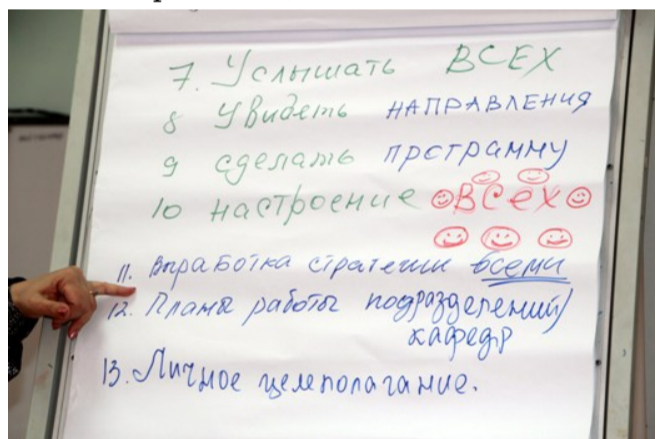 7. Услышать ВСЕХ
8 Увидеть НАПРАВЛЕНИЯ
9 сделать прстрамму
10 настроение ВСеХ
11. Выработка стратегии всеми
12. Планы работы подразделений/
кафедр
13. Личное целеполагание.